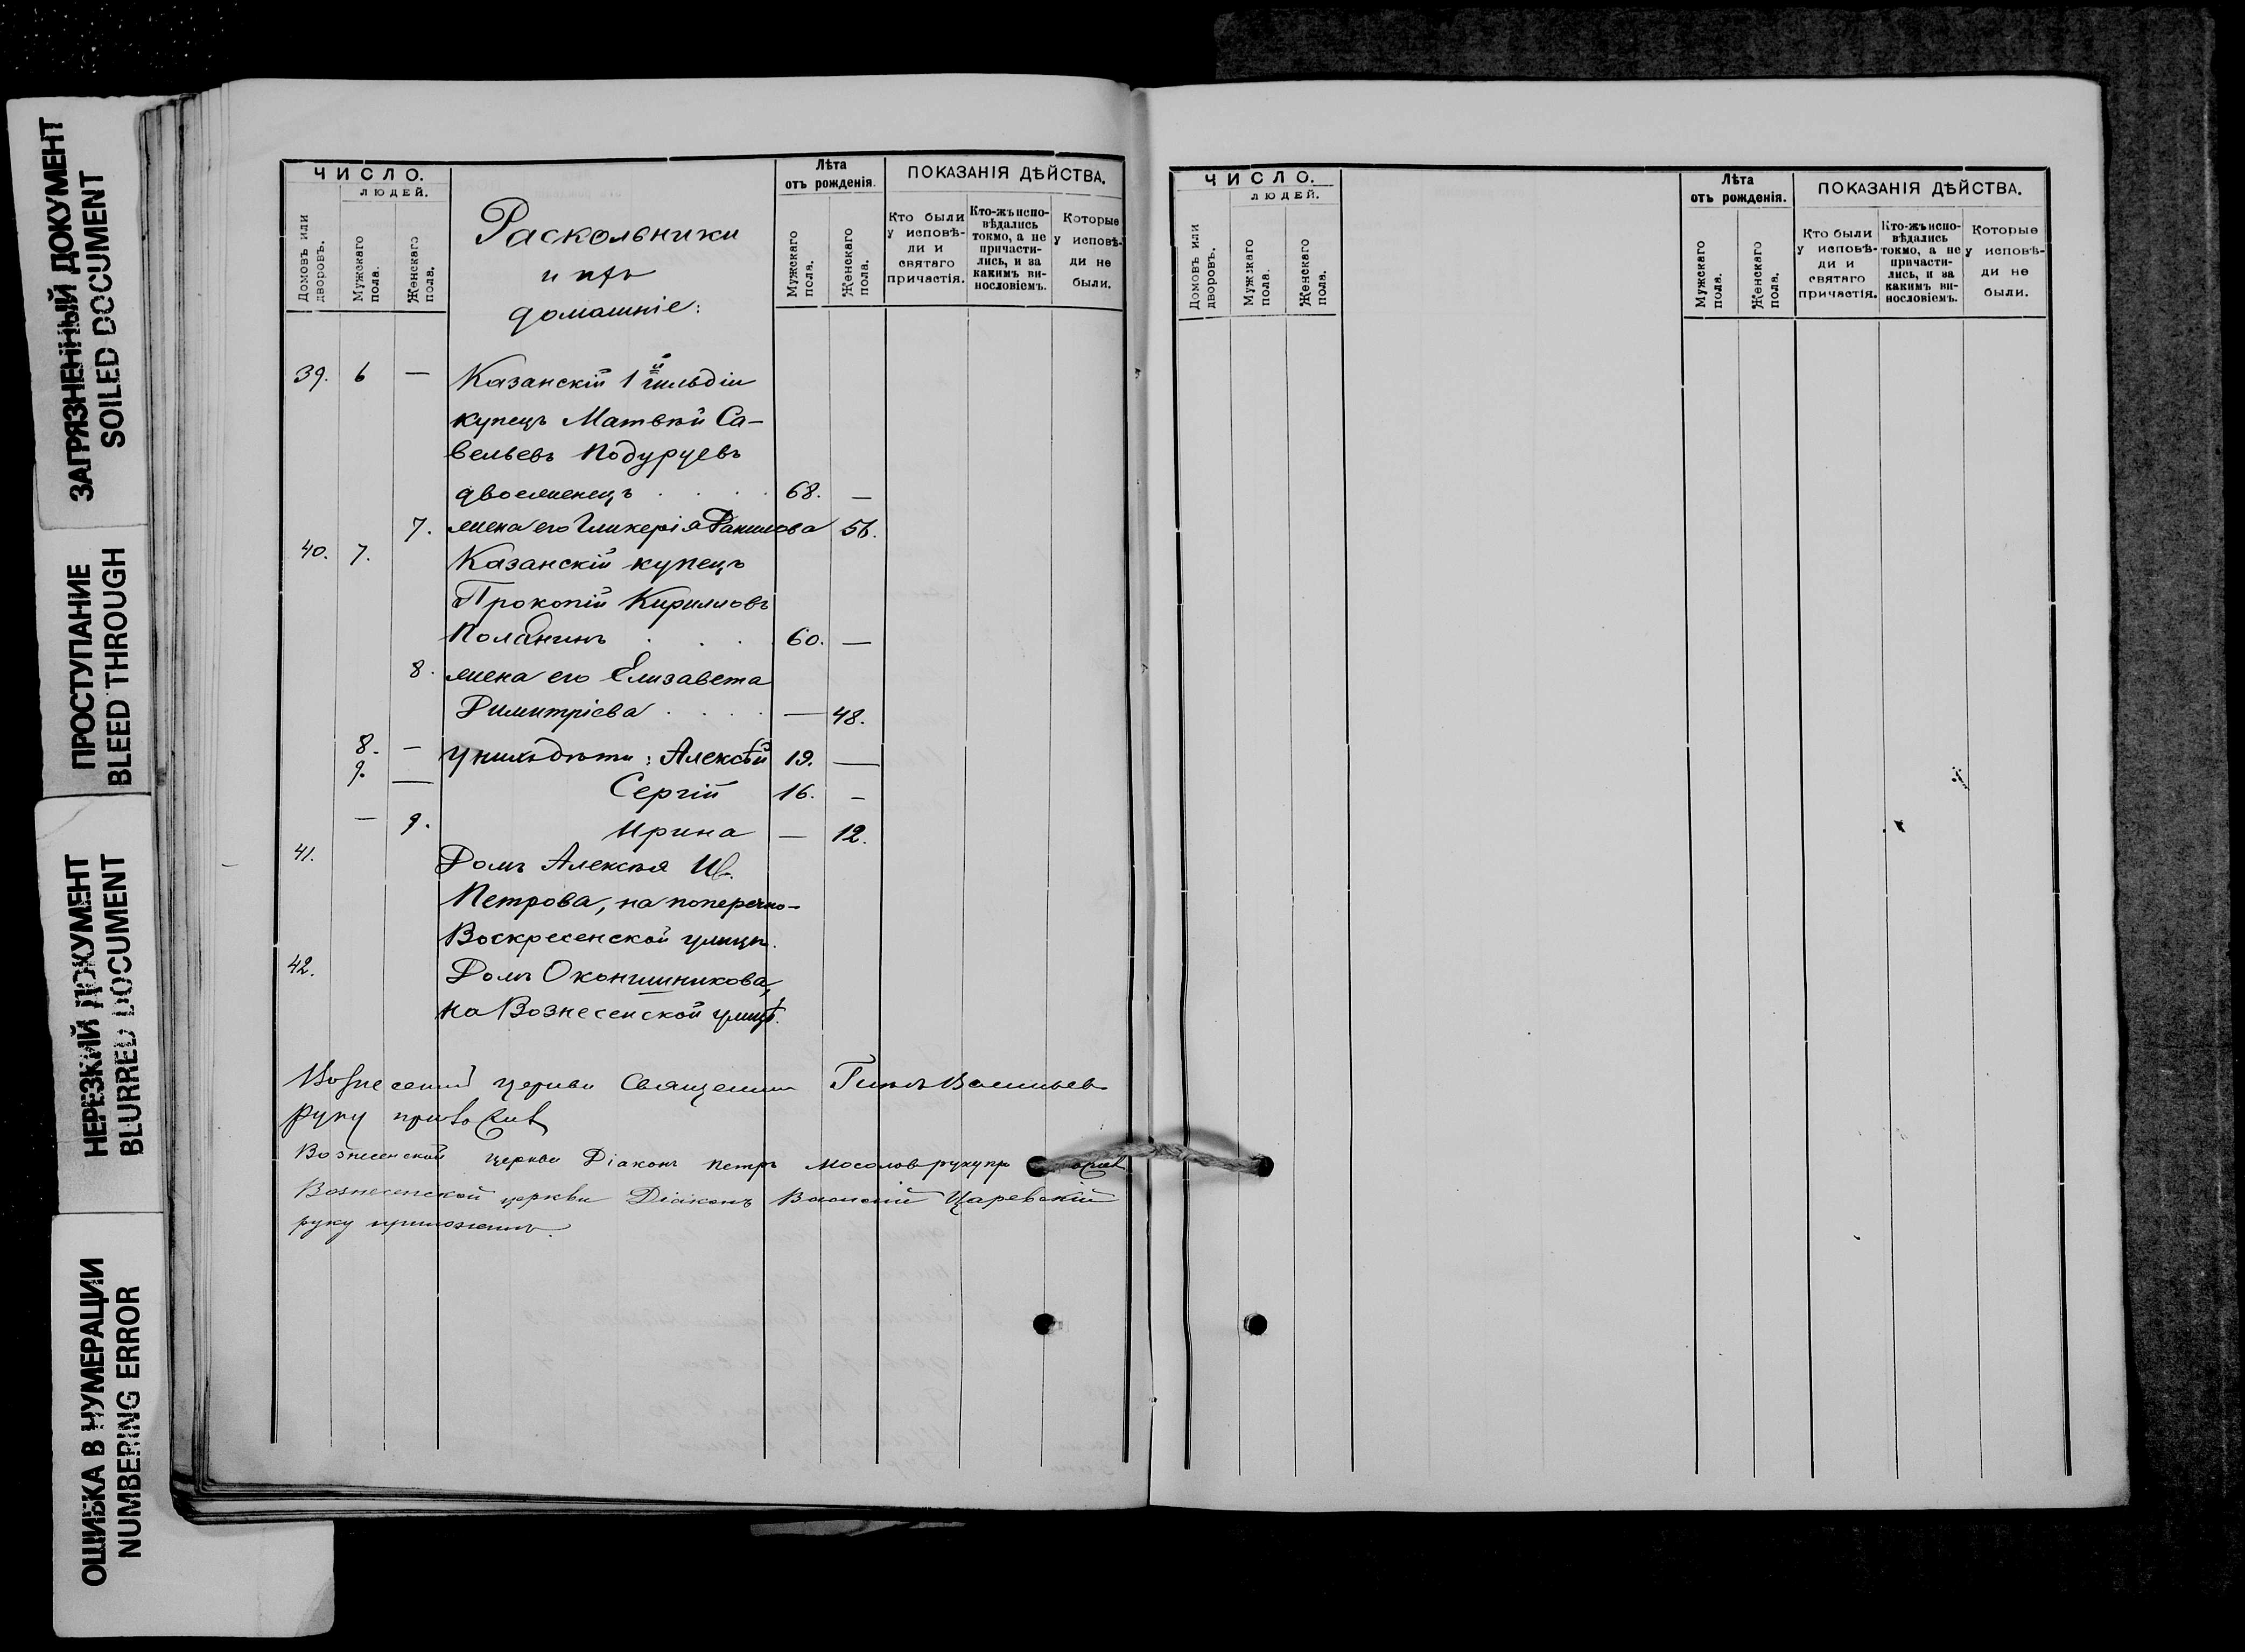 ЗАГРЯЗНЕННЫЙ ДОКУМЕНТ
SOILED DOCUMENT
ПРОСТУПАНИЕ
BLEED THROUGH
НЕРЕЗКИЙ ДОКУМЕНТ
BLURRED DOCUMENT
ОШИБКА В НУМЕРАЦИИ
NUMBERING ERROR
ЧИСЛО.
ЛЮДЕЙ.
Домовъ или дворовъ.
Мужскаго пола.
Женскаго пола.
Раскольники
и ихъ
домашніе:
Лѣта
отъ рожденія.
Мужскаго пола.
Женскаго пола.
ПОКАЗАНІЯ ДѢЙСТВА.
Кто были у исповѣ-ди и святаго причастія.
Кто-жъ испо-вѣдались токмо, а не причасти-лись, и за какимъ ви-нословіемъ.
Которые у исповѣ-ди не были.
39. 6 — Казанскій 1й гильдіи
купецъ Матвѣй Са-
вельевъ Подуруевъ
двоеженецъ . . . . 68. —
7. жена его Гликерія Данилова 56.
40. 7. Казанскій купецъ
Прокопій Кирилловъ
Поланинъ . . . 60. —
8. жена его Елизавета
Димитріева . . . . — 48.
8. — У нихъ дѣти: Алексѣй 19. —
9. — Сергій 16. —
— 9. Ирина — 12.
41. Домъ Алексѣя Ив.
Петрова, на поперечно-
Воскресенской улицѣ.
42. Домъ Оконишникова,
на Вознесенской улицѣ.
церкви Священникъ
руку
Вознесенской церкви Діаконъ Петръ Мосолов руку
Вознесенской церкви Діаконъ Василій Царевскій
руку приложилъ.
ЧИСЛО.
ЛЮДЕЙ.
Домовъ или дворовъ.
Мужскаго пола.
Женскаго пола.
Лѣта
отъ рожденія.
Мужскаго пола.
Женскаго пола.
ПОКАЗАНІЯ ДѢЙСТВА.
Кто были у исповѣ-ди и святаго причастія.
Кто-жъ испо-вѣдались токмо, а не причасти-лись, и за какимъ ви-нословіемъ.
Которые у исповѣ-ди не были.